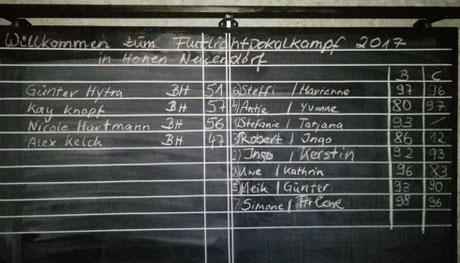 Willkommen zum Flutlichtpokalkampf 2017
in Hohen Neuendorf
B C
Günter Hytra BH 51
Kay Knopf BH 57
Nicole Hartmann BH 56
Alex Kelch BH 47
6) Steffi / Marianne 97 96
4) Antje / Yvonne 80 97
1) Stefanie / Tatjana 93 /
3) Robert / Ingo 86 12
2) Ingo / Kerstin 92 93
8) Uwe / Kathrin 96 83
5) Meik / Günter 93 90
7) Simone / 98 96